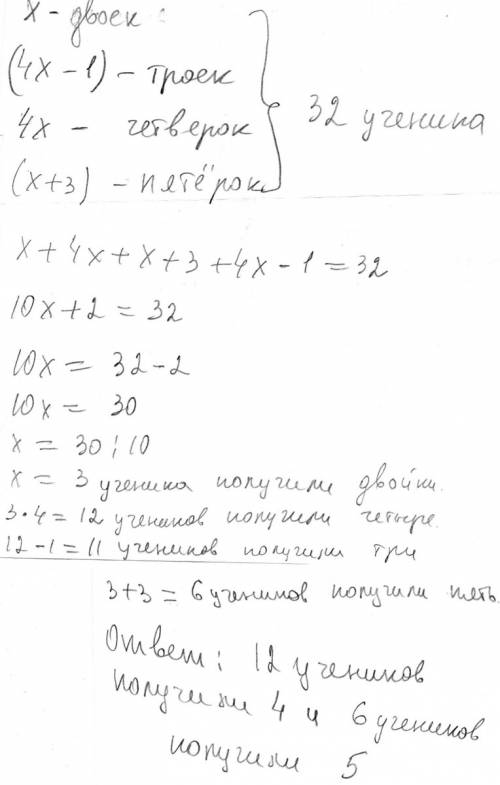 x - двоек :
(4x - 1) - троек
4x - четверок
(x+3) - пятёрок
32 ученика
x + 4x + x + 3 + 4x - 1 = 32
10x + 2 = 32
10x = 32 - 2
10x = 30
x = 30 : 10
x = 3 ученика получили двойки.
3 · 4 = 12 учеников получили четыре.
12 - 1 = 11 учеников получили три
3+3 = 6 учеников получили пять.
Ответ: 12 учеников
получили 4 и 6 учеников
получили 5